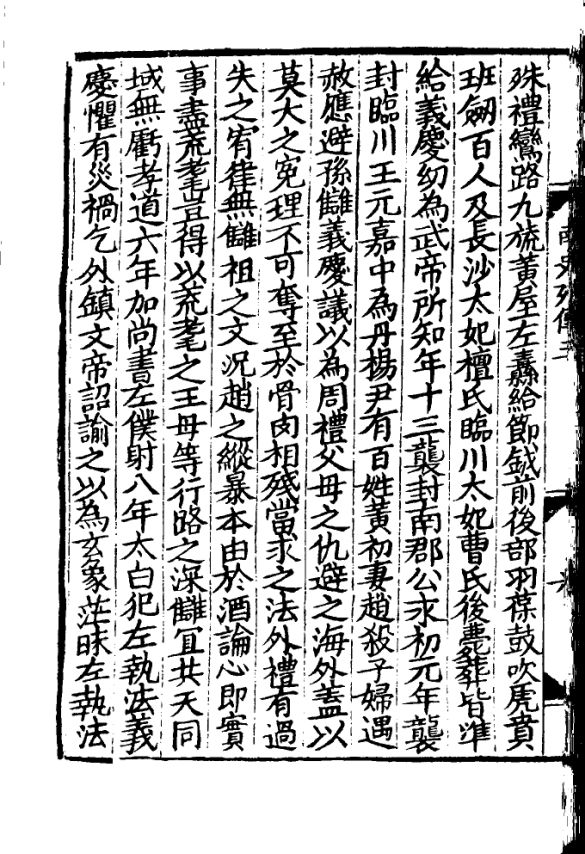 南史列傳三
殊禮鸞路九旒黃屋左纛給節鉞前後部羽葆鼓吹虎賁
班劒百人及長沙太妃檀氏臨川太妃曹氏後薨葬皆準
給義慶幼為武帝所知年十三襲封南郡公永初元年襲
封臨川王元嘉中為丹楊尹有百姓黃初妻趙殺子婦遇
赦應避孫讎義慶議以為周禮父母之仇避之海外蓋以
莫大之冤理不可奪至於骨肉相殘當求之法外禮有過
失之宥律無讎祖之文況趙之縱暴本由於酒論心即實
事盡荒耄豈得以荒耄之王母等行路之深讎宜共天同
域無虧孝道六年加尚書左僕射八年太白犯左執法義
慶懼有災禍乞外鎮文帝詔諭之以為玄象茫昧左執法